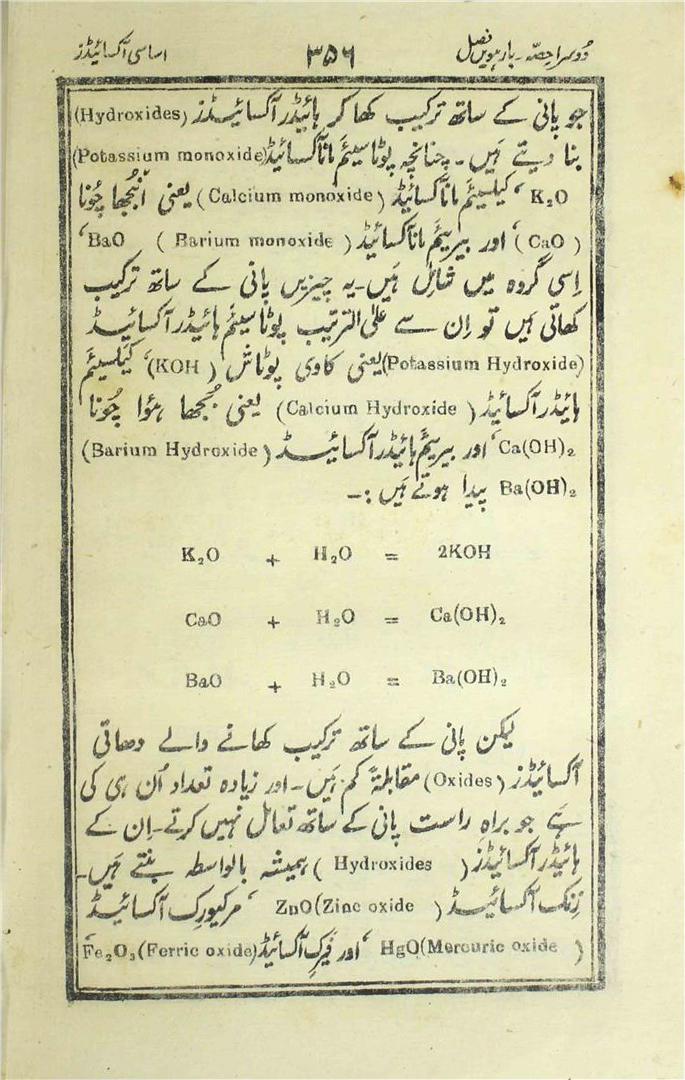 دُوسرا حِصّہ۔ بارہویں فصل ۳۵۶ اساسی آکسائیڈز
جو پانی کے ساتھ ترکیب کھا کر ہائیڈر آکسائیڈز (Hydroxides)
بنا دیتے ہَیں۔ چنانچہ پوٹاسیئم مانآکسائیڈ (Potassium monoxide)
K₂O ‘ کیلسیئم مانآکسائیڈ (Calcium monoxide) یعنی اَنبُجھا چُونا
(CaO) ‘ اور بیریئم مانآکسائیڈ (Barium monoxide) BaO ‘
اِسی گروہ میں شامِل ہَیں۔ یہ چیزیں پانی کے ساتھ ترکیب
کھاتی ہَیں تو اِن سے علیٰ الترتیب پوٹاسیئم ہائیڈر آکسائیڈ
(Potassium Hydroxide) یعنی کاوی پوٹاش (KOH) ‘ کیلسیئم
ہائیڈر آکسائیڈ (Calcium Hydroxide) یعنی بُجھا ہؤا چُونا
Ca(OH)₂ ‘ اور بیریئم ہائیڈر آکسائیڈ (Barium Hydroxide)
Ba(OH)₂ پیدا ہوتے ہَیں :۔
K₂O + H₂O = 2KOH
CaO + H₂O = Ca(OH)₂
BaO + H₂O = Ba(OH)₂
لیکن پانی کے ساتھ ترکیب کھانے والے دھاتی
آکسائیڈز (Oxides) مقابلۃً کم ہَیں۔ اور زیادہ تعداد اُن ہی کی
ہَے جو براہِ راست پانی کے ساتھ تعامل نہیں کرتے۔ اِن کے
ہائیڈر آکسائیڈز (Hydroxides) ہمیشہ بالواسطہ بنتے ہَیں۔
زِنک آکسائیڈ (Zinc oxide) ZnO ‘ مرکیورِک آکسائیڈ
(Mercuric oxide) HgO ‘ اور فیرِک آکسائیڈ (Ferric oxide) Fe₂O₃ ‘